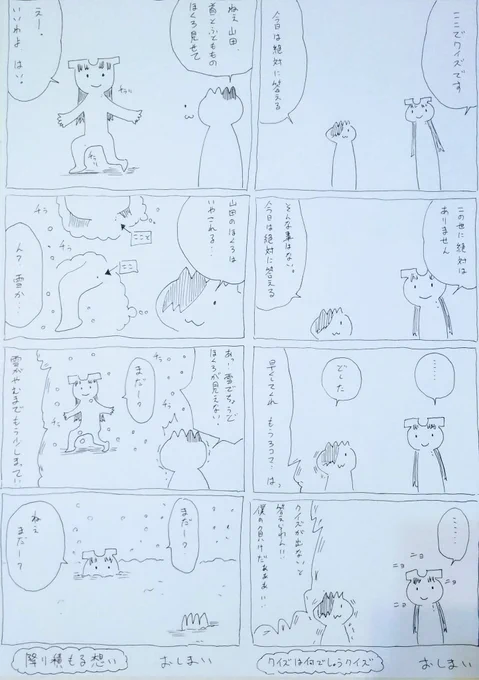 ここでクイズです
今日は絶対に答える
この世に絶対は
ありません
そんな事はない。
今日は絶対に答える
……
でした
早くしてくれ
もう3コマ
……
ニョ
ニョ
ニョ
ニョ
クイズが出ないと
答えられん!!
僕の負けだぁぁぁい!!
クイズは何でしょうクイズ
おしまい
ねぇ山田、
首とふともものほくろ見せて
えー。
いいわよ はい。
チラッ
チラッ
山田のほくろは
いやされる…
ここと
ここ
チラ
チラ
ん? 雪か…
あっ…雪でちょうど
ほくろが見えない。
まだー?
チラ
チラ
雪がやむまでもう少しまって
まだー?
ねぇ
まだー?
降り積もる想い
おしまい